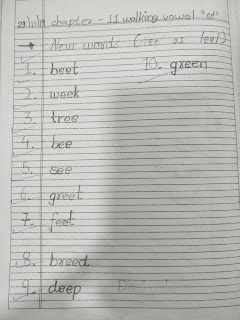 chapter - 11 walking vowel "ee"
→ New words ('ee' as feel)
1. beet 10. green
2. week
3. tree
4. bee
5. see
6. greet
7. feet
8. breed
9. deep